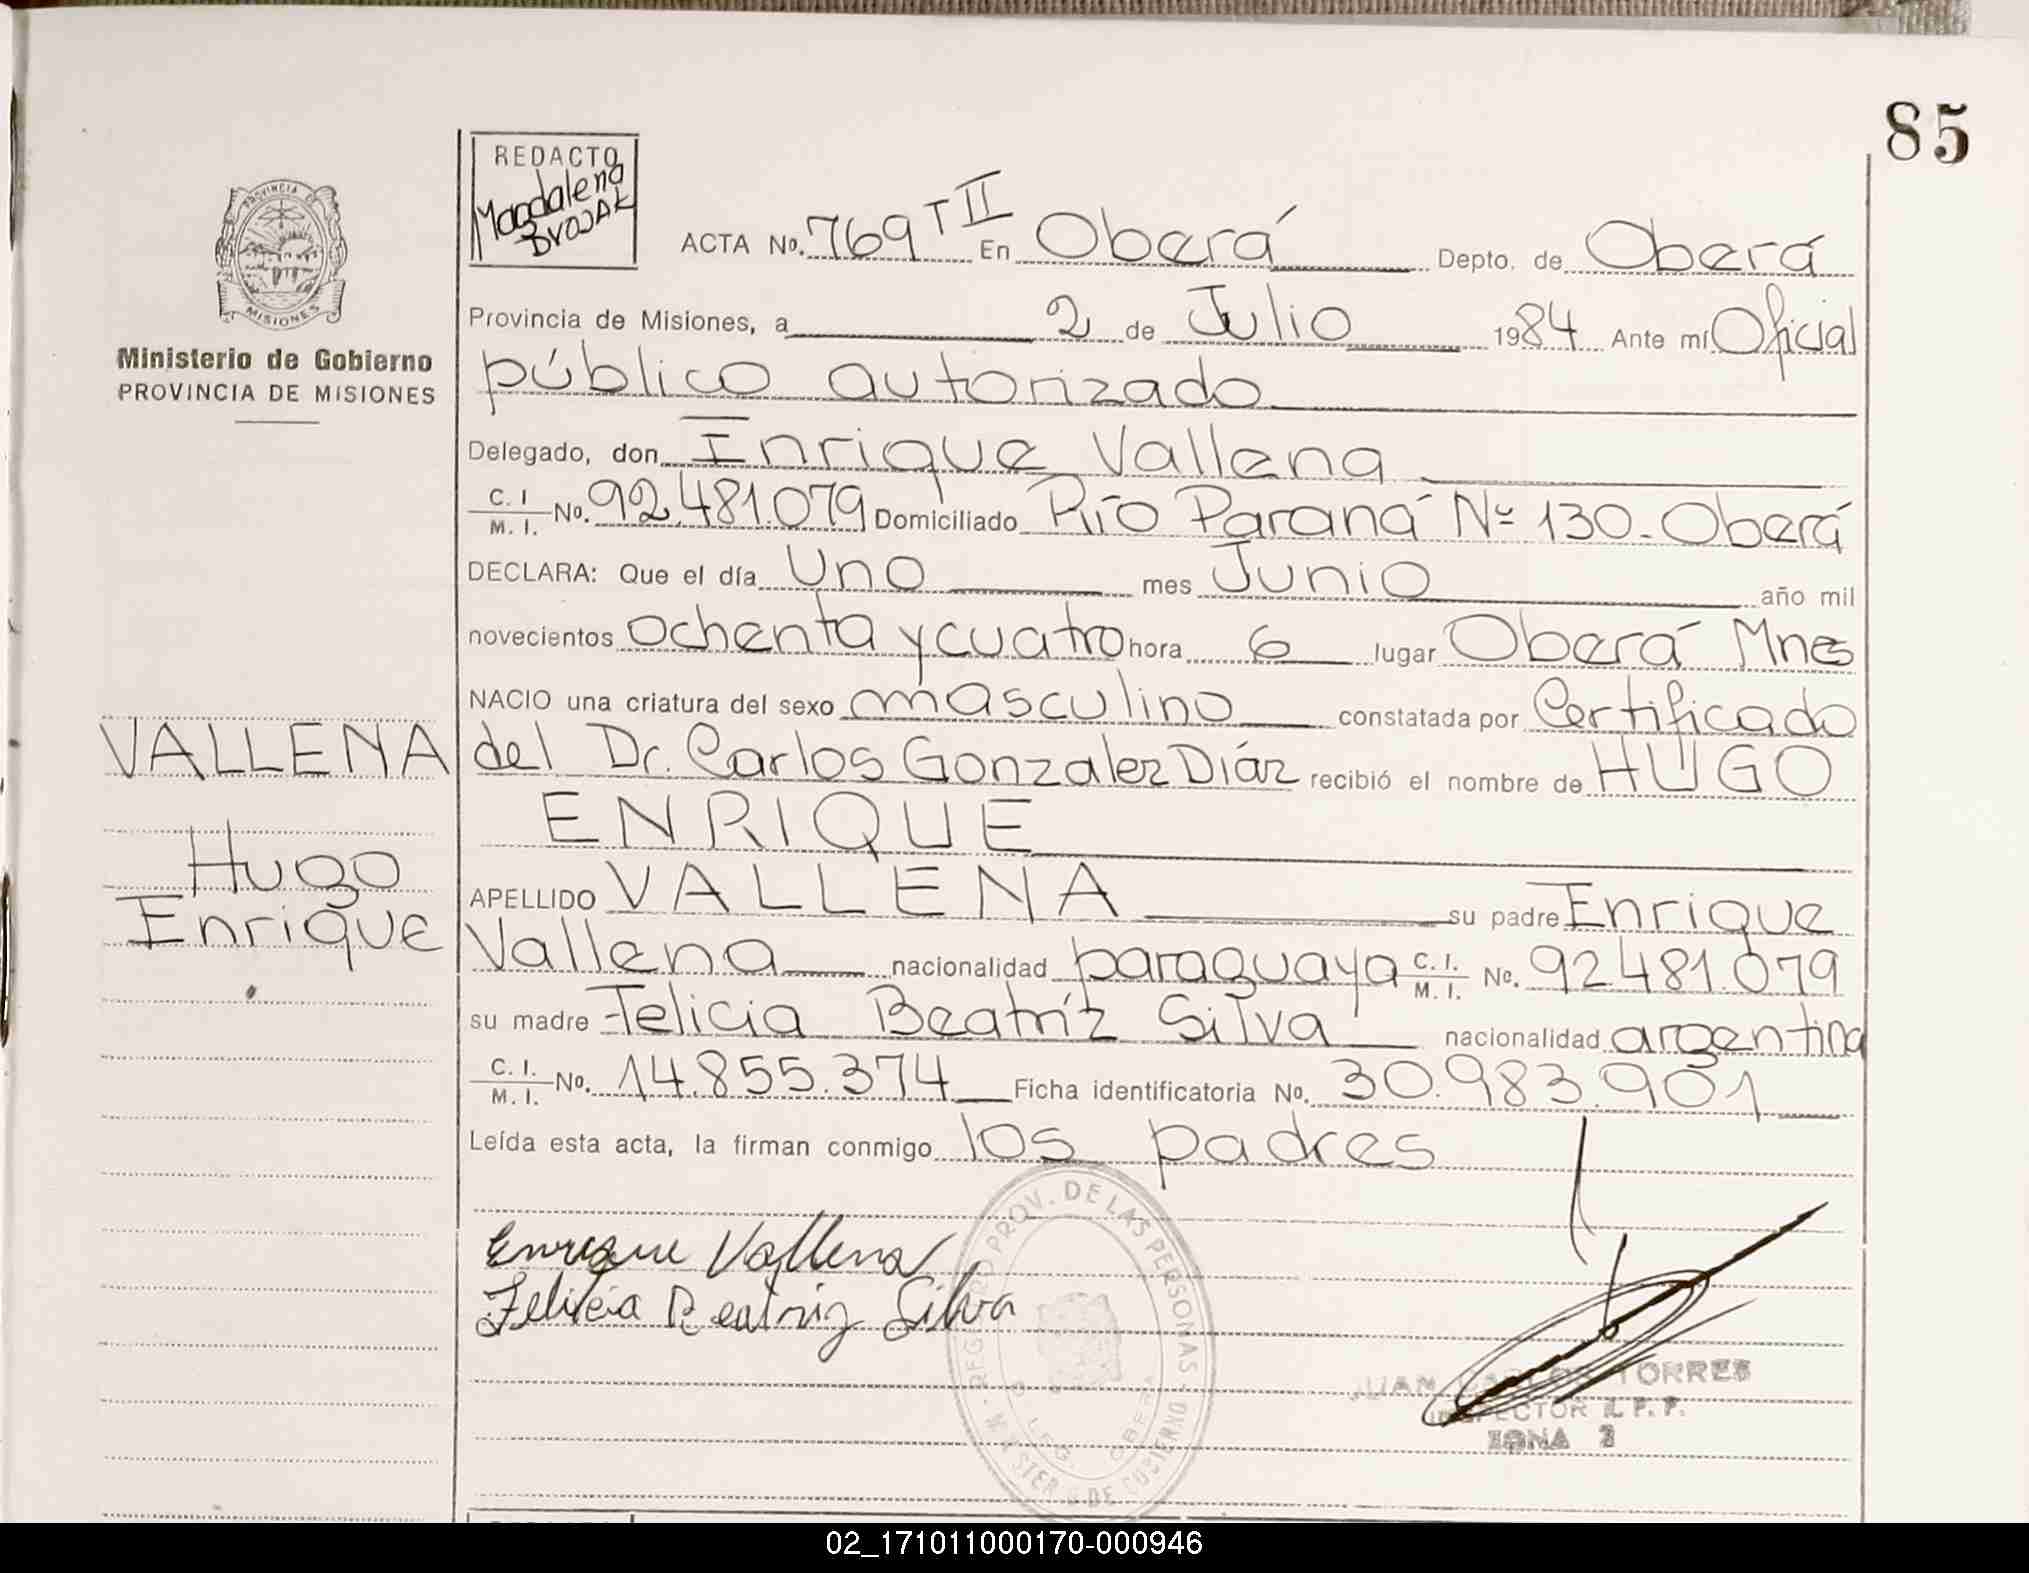 85
REDACTO
Magdalena
PROVINCIA DE
MISIONES
Ministerio de Gobierno
PROVINCIA DE MISIONES
ACTA No. 769 T II En Oberá Depto. de Oberá
Provincia de Misiones, a 2 de Julio 1984 Ante mí Oficial
público autorizado
Delegado, don Enrique Vallena
C. I. / M. I. No. 92.481.079 Domiciliado Río Paraná Nº 130 - Oberá
DECLARA: Que el día Uno mes Junio año mil
novecientos ochenta y cuatro hora 6 lugar Oberá Mnes
NACIO una criatura del sexo masculino constatada por Certificado
del Dr. Carlos Gonzalez Diáz recibió el nombre de HUGO
ENRIQUE
APELLIDO VALLENA su padre Enrique
Vallena nacionalidad paraguaya C. I. / M. I. No. 92481.079
su madre Felicia Beatríz Silva nacionalidad argentina
C. I. / M. I. No. 14.855.374 Ficha identificatoria No. 30.983.901
Leída esta acta, la firman conmigo los padres
VALLENA
Hugo
Enrique
Enrique Vallena
Felicia Beatriz Silva
REGISTRO PROV. DE LAS PERSONAS - MINISTERIO DE GOBIERNO
OBERA
JUAN CARLOS TORRES
INSPECTOR
ZONA 3
02_171011000170-000946